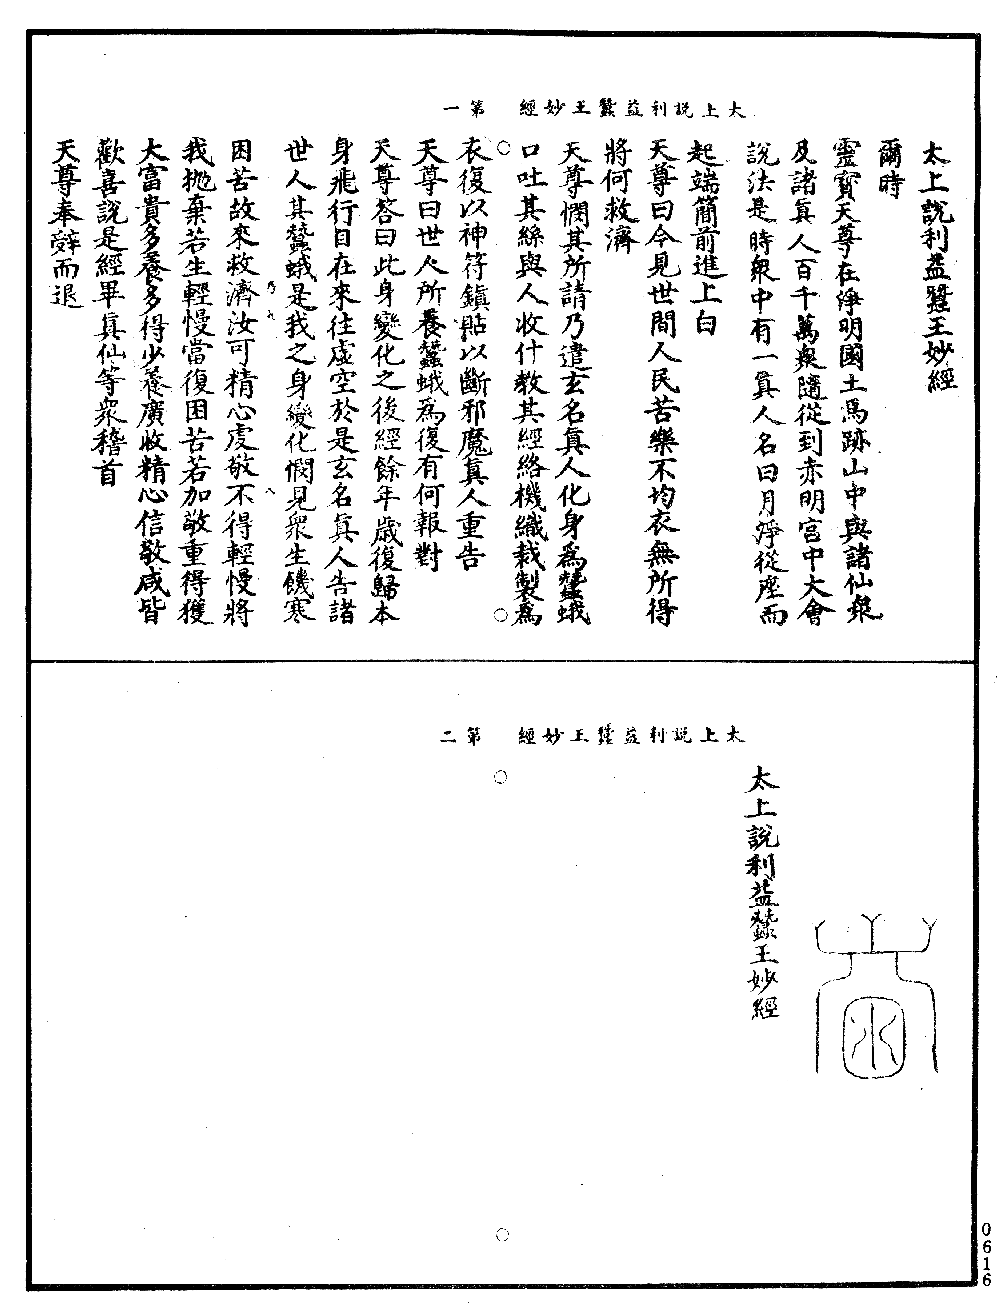 太上說利益蠶王妙經　第一
太上說利益蠶王妙經
爾時
靈寶天尊在淨明國土馮跡山中與諸仙衆
及諸眞人百千萬衆隨從到赤明宮中大會
說法是時衆中有一眞人名曰月淨從座而
起端簡前進上白
天尊曰今見世間人民苦樂不均衣無所得
將何救濟
天尊憫其所請乃遣玄名眞人化身爲蠶蛾
口吐其絲與人收什教其經絡機織裁製爲
衣復以神符鎭貼以斷邪魔眞人重告
天尊曰世人所養蠶蛾爲復有何報對
天尊答曰此身變化之後經餘年歲復歸本
身飛行自在來往虛空於是玄名眞人告諸
世人其蠶蛾是我之身變化憫見衆生饑寒
困苦故來救濟汝可精心虔敬不得輕慢將
我抛棄若生輕慢當復困苦若加敬重得獲
大富貴多養多得少養廣收精心信敬咸皆
歡喜說是經畢眞仙等衆稽首
天尊奉辭而退
太上說利益蠶王妙經　第二
太上說利益蠶王妙經
0616